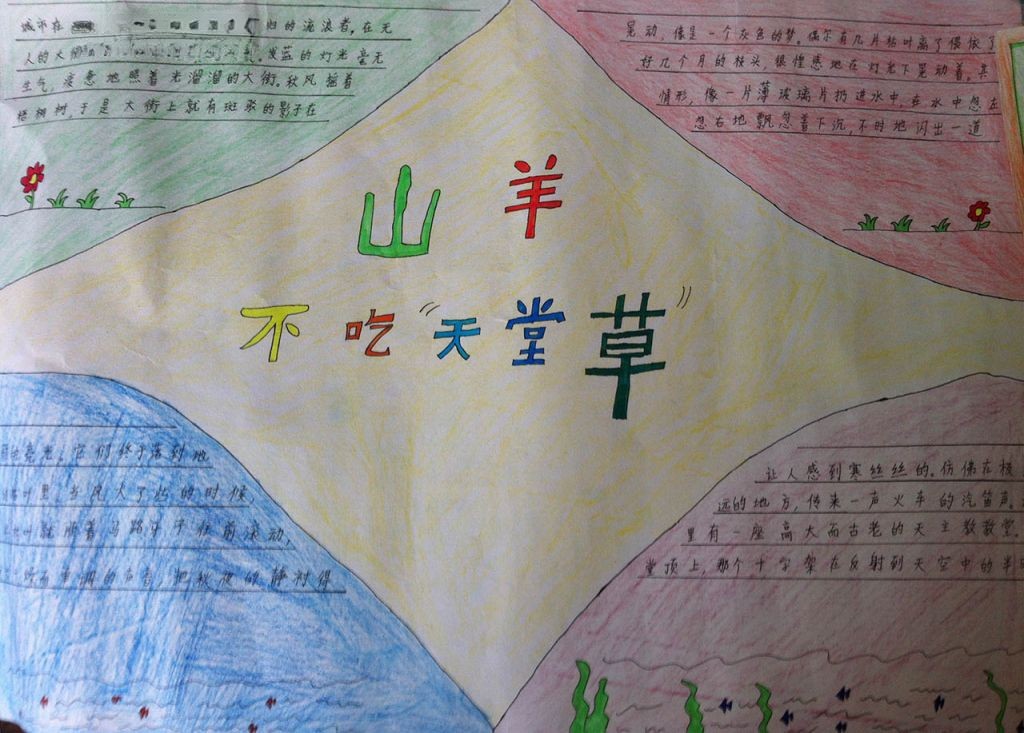 城市在 归的流浪者,在无
人的大街 发蓝的灯光毫无
生气,疲惫地照着光溜溜的大街。秋风摇着
梧桐树,于是大街上就有斑驳的影子在
晃动,像是一个灰色的梦。偶尔有几片枯叶离了偎依了
好几个月的枝头,很惶惑地在灯光下晃动着,其
情形,像一片薄玻璃片扔进水中,在水中忽左
忽右地飘忽着下沉,不时地闪出一道
山羊
不吃“天堂草”
亮光。它们终于落到地
叶里。当风大了些的时候,
叶就顺着马路牙子往前滚动,
单调的声音,把秋夜的静衬得
让人感到寒丝丝的。仿佛在极
远的地方,传来一声火车的汽笛声。
里有一座高大而古老的天主教教堂。
堂顶上,那个十字架在反射到天空中的半